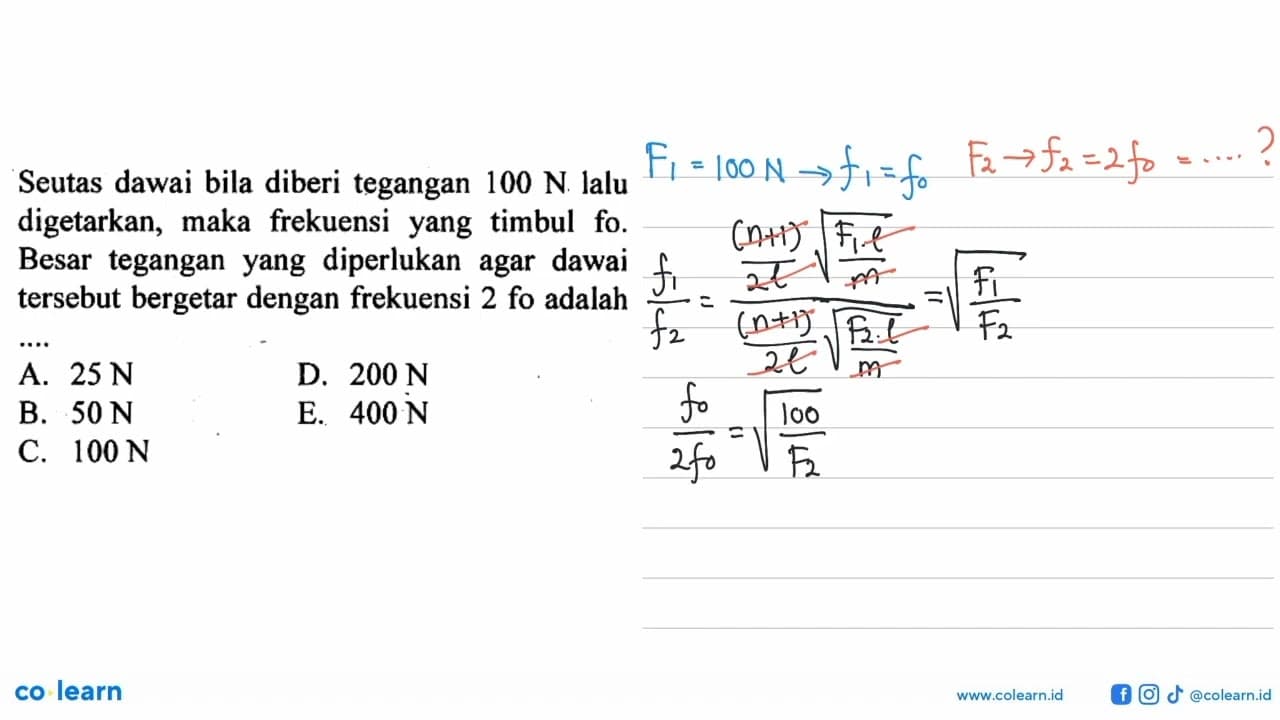 Seutas dawai bila diberi tegangan 100 N lalu
digetarkan, maka frekuensi yang timbul fo.
Besar tegangan yang diperlukan agar dawai
tersebut bergetar dengan frekuensi 2 fo adalah
....
A. 25 N
B. 50 N
C. 100 N
D. 200 N
E. 400 N
F₁ = 100 N → f₁ = f₀
F₂ → f₂ = 2f₀ = ....?
f₁/f₂ = ((n+1)/2l √(F₁.l/m)) / ((n+1)/2l √(F₂.l/m)) = √(F₁/F₂)
f₀/2f₀ = √(100/F₂)
co learn
www.colearn.id
@colearn.id